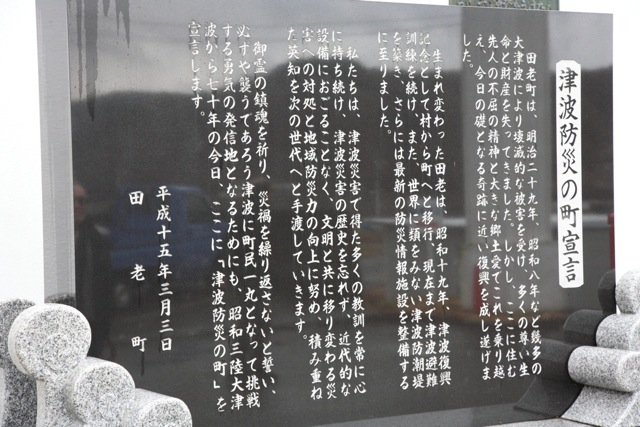 津波防災の町宣言
田老町は、明治二十九年、昭和八年など幾多の
大津波により壊滅的な被害を受け、多くの尊い生
命と財産を失ってきました。しかし、ここに住む
先人の不屈の精神と大きな郷土愛でこれを乗り越
え、今日の礎となる奇跡に近い復興を成し遂げま
した。
生まれ変わった田老は、昭和十九年、津波復興
記念として村から町へと移行、現在まで津波避難
訓練を続け、また、世界に類をみない津波防潮堤
を築き、さらには最新の防災情報施設を整備する
に至りました。
私たちは、津波災害で得た多くの教訓を常に心
に持ち続け、津波災害の歴史を忘れず、近代的な
設備におごることなく、文明と共に移り変わる災
害への対処と地域防災力の向上に努め、積み重ね
た英知を次の世代へと手渡していきます。
御霊の鎮魂を祈り、災禍を繰り返さないと誓い、
必ずや襲うであろう津波に町民一丸となって挑戦
する勇気の発信地となるためにも、昭和三陸大津
波から七十年の今日、ここに「津波防災の町」を
宣言します。
平成十五年三月三日
田老町